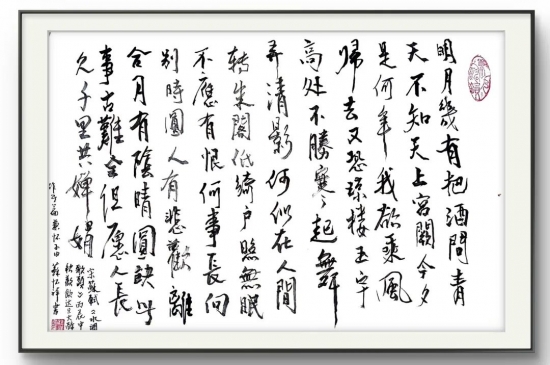 明月幾有把酒問青
天不知天上宮闕今夕
是何年我欲乘風
歸去又恐瓊樓玉宇
高处不勝寒〻起舞
弄清影何似在人間
转朱閣低綺户照無眠
不應有恨何事長向
别時圓人有悲歡離
合月有陰晴圓缺此
事古難全但愿人長
久千里共嬋娟
作此篇兼怀子由
宋蘇軾之水調